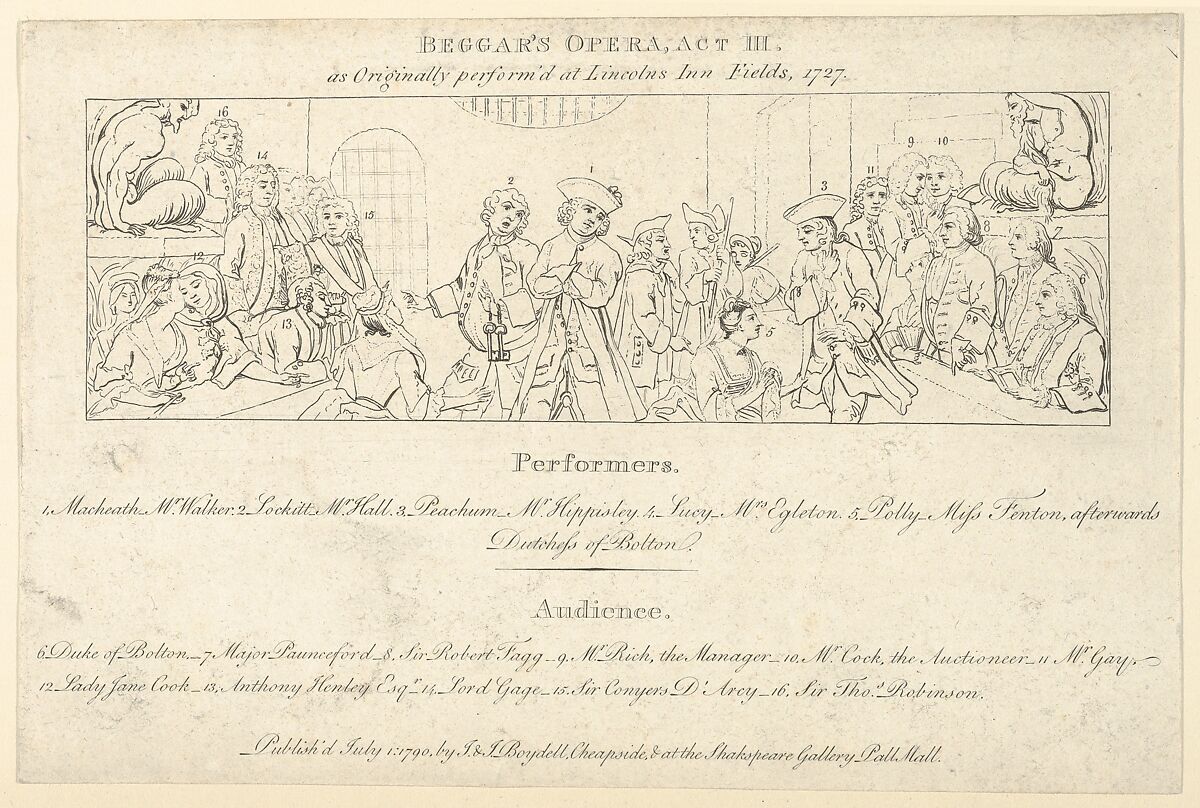 BEGGAR'S OPERA, ACT III.
as Originally perform'd at Lincolns Inn Fields, 1727.
16
14
15
12
13
2
1
3
11
9 10
8
7
6
5
Performers.
1, Macheath_Mr Walker. 2_Lockitt_Mr Hall. 3_Peachum_Mr Hippisley. 4_Lucy_Mrs Egleton. 5_Polly_Miss Fenton, afterwards
Dutchess of Bolton.
Audience.
6_Duke of Bolton._7_Major Paunceford_8, Sir Robert Fagg_9, Mr Rich, the Manager_10, Mr Cock, the Auctioneer_11 Mr Gay,
12_Lady Jane Cook_13, Anthony Henley Esqr 14_Lord Gage_15_Sir Conyers D'Arcy_16, Sir Thos. Robinson.
Publish'd July 1: 1790, by J. & J. Boydell, Cheapside, & at the Shakspeare Gallery Pall Mall.